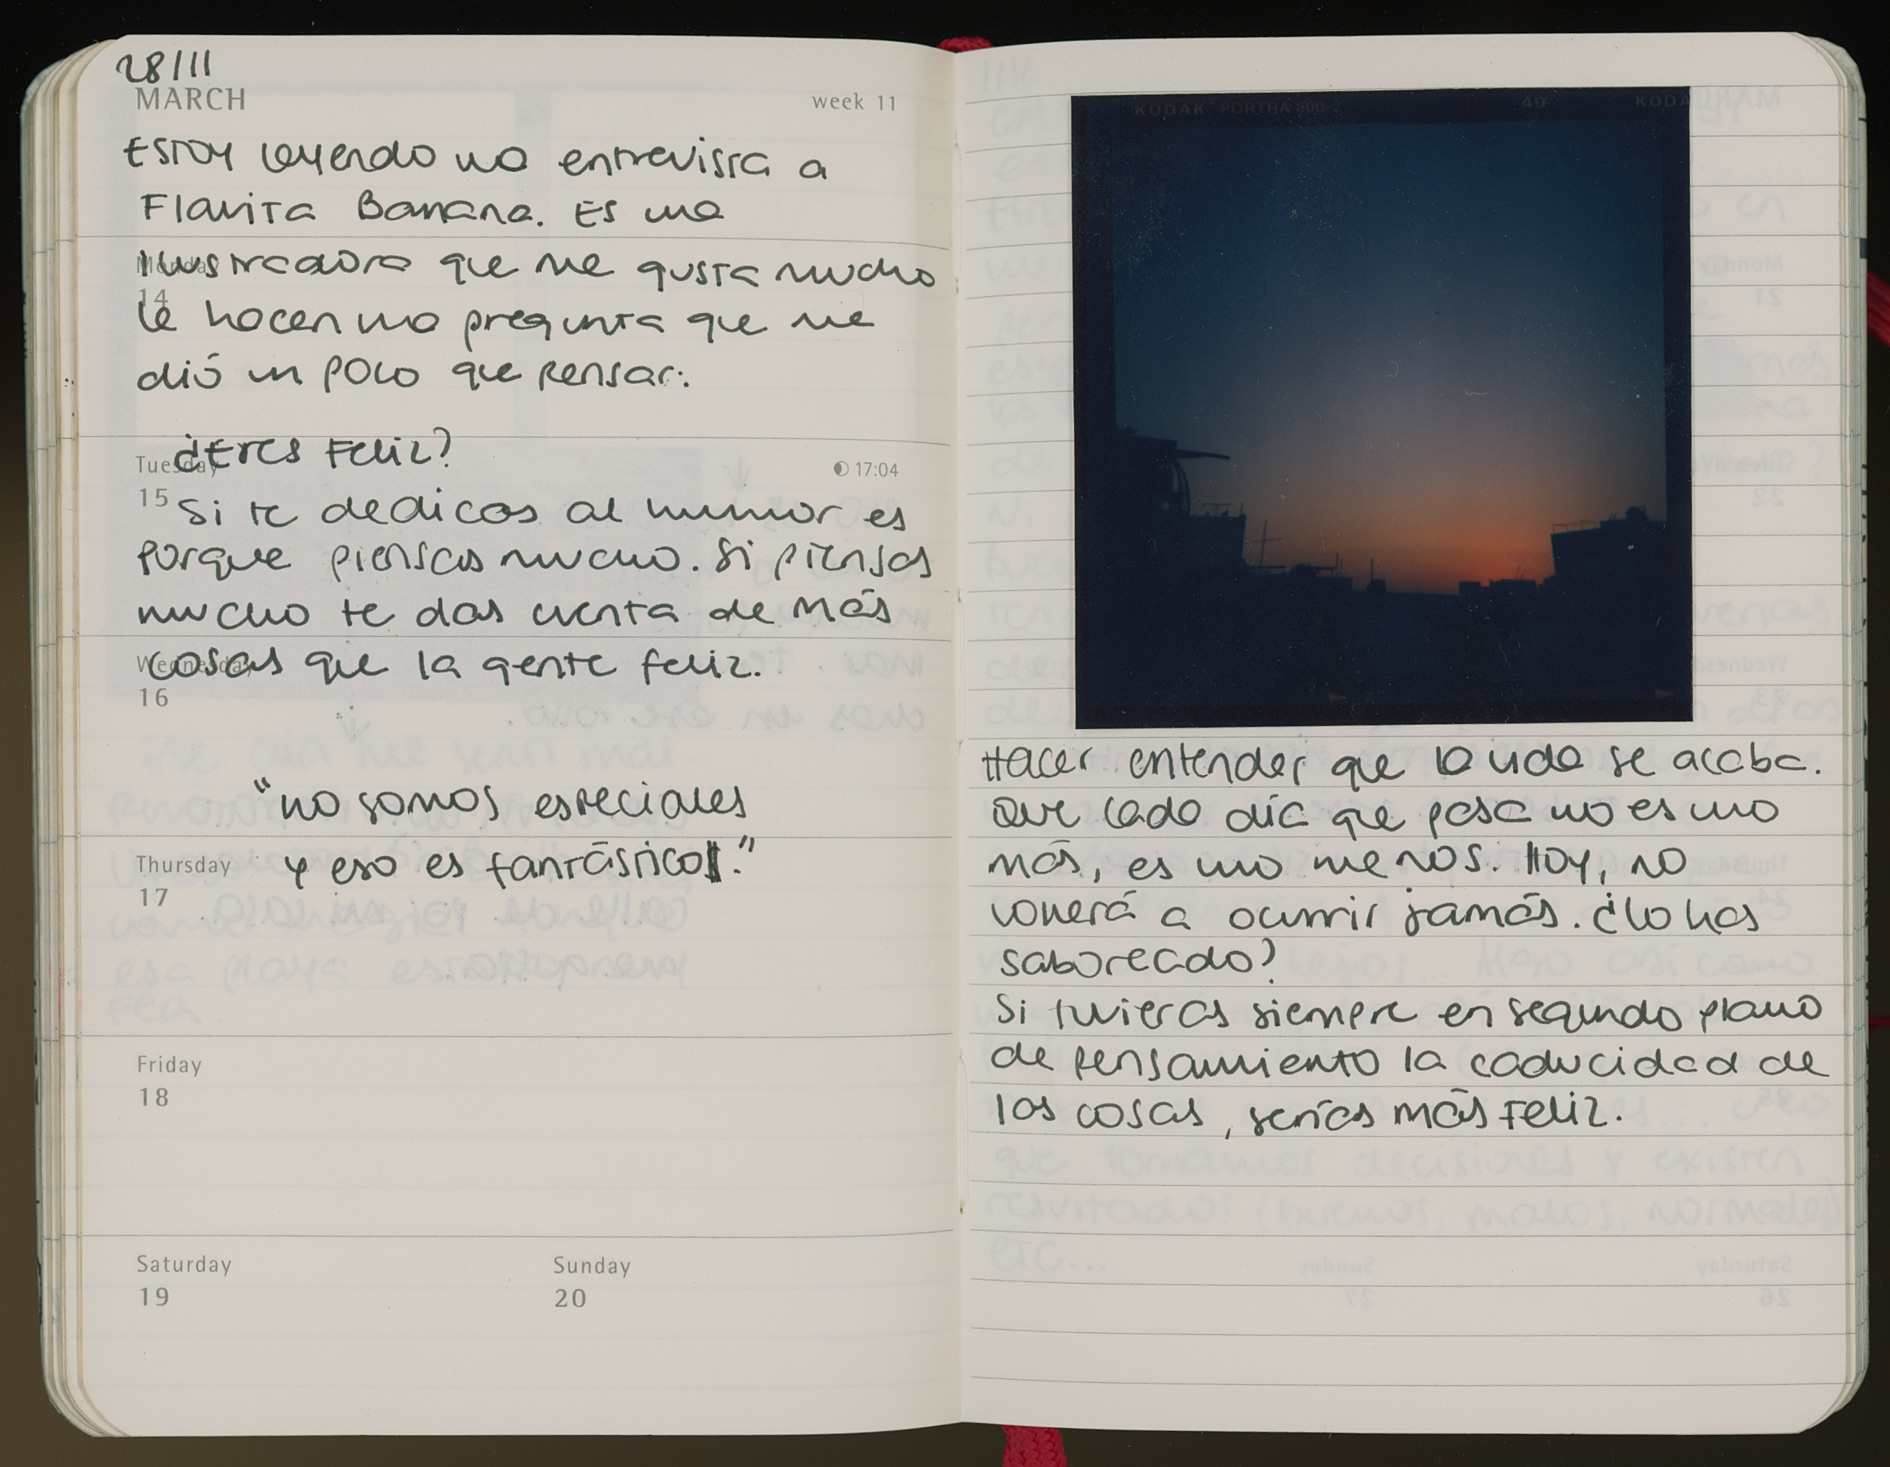 28/11
MARCH
week 11
Estoy leyendo una entrevista a
Flavita Banana. Es una
Monday
ilustradora que me gusta mucho
14
le hacen una pregunta que me
dió un poco que pensar:
¿Eres feliz?
Tuesday
17:04
15
Si te dedicas al humor es
porque piensas mucho. Si piensas
mucho te das cuenta de más
Wednesday
cosas que la gente feliz.
16
"no somos especiales
Thursday
y eso es fantástico."
17
Friday
18
Saturday
Sunday
19
20
KODAK PORTRA 800-2
49
KODA
Hacer entender que la vida se acaba.
Que cada día que pasa no es uno
más, es uno menos. Hoy, no
volverá a ocurrir jamás. ¿Lo has
saboreado?
Si tuvieras siempre en segundo plano
de pensamiento la caducidad de
las cosas, serías más feliz.